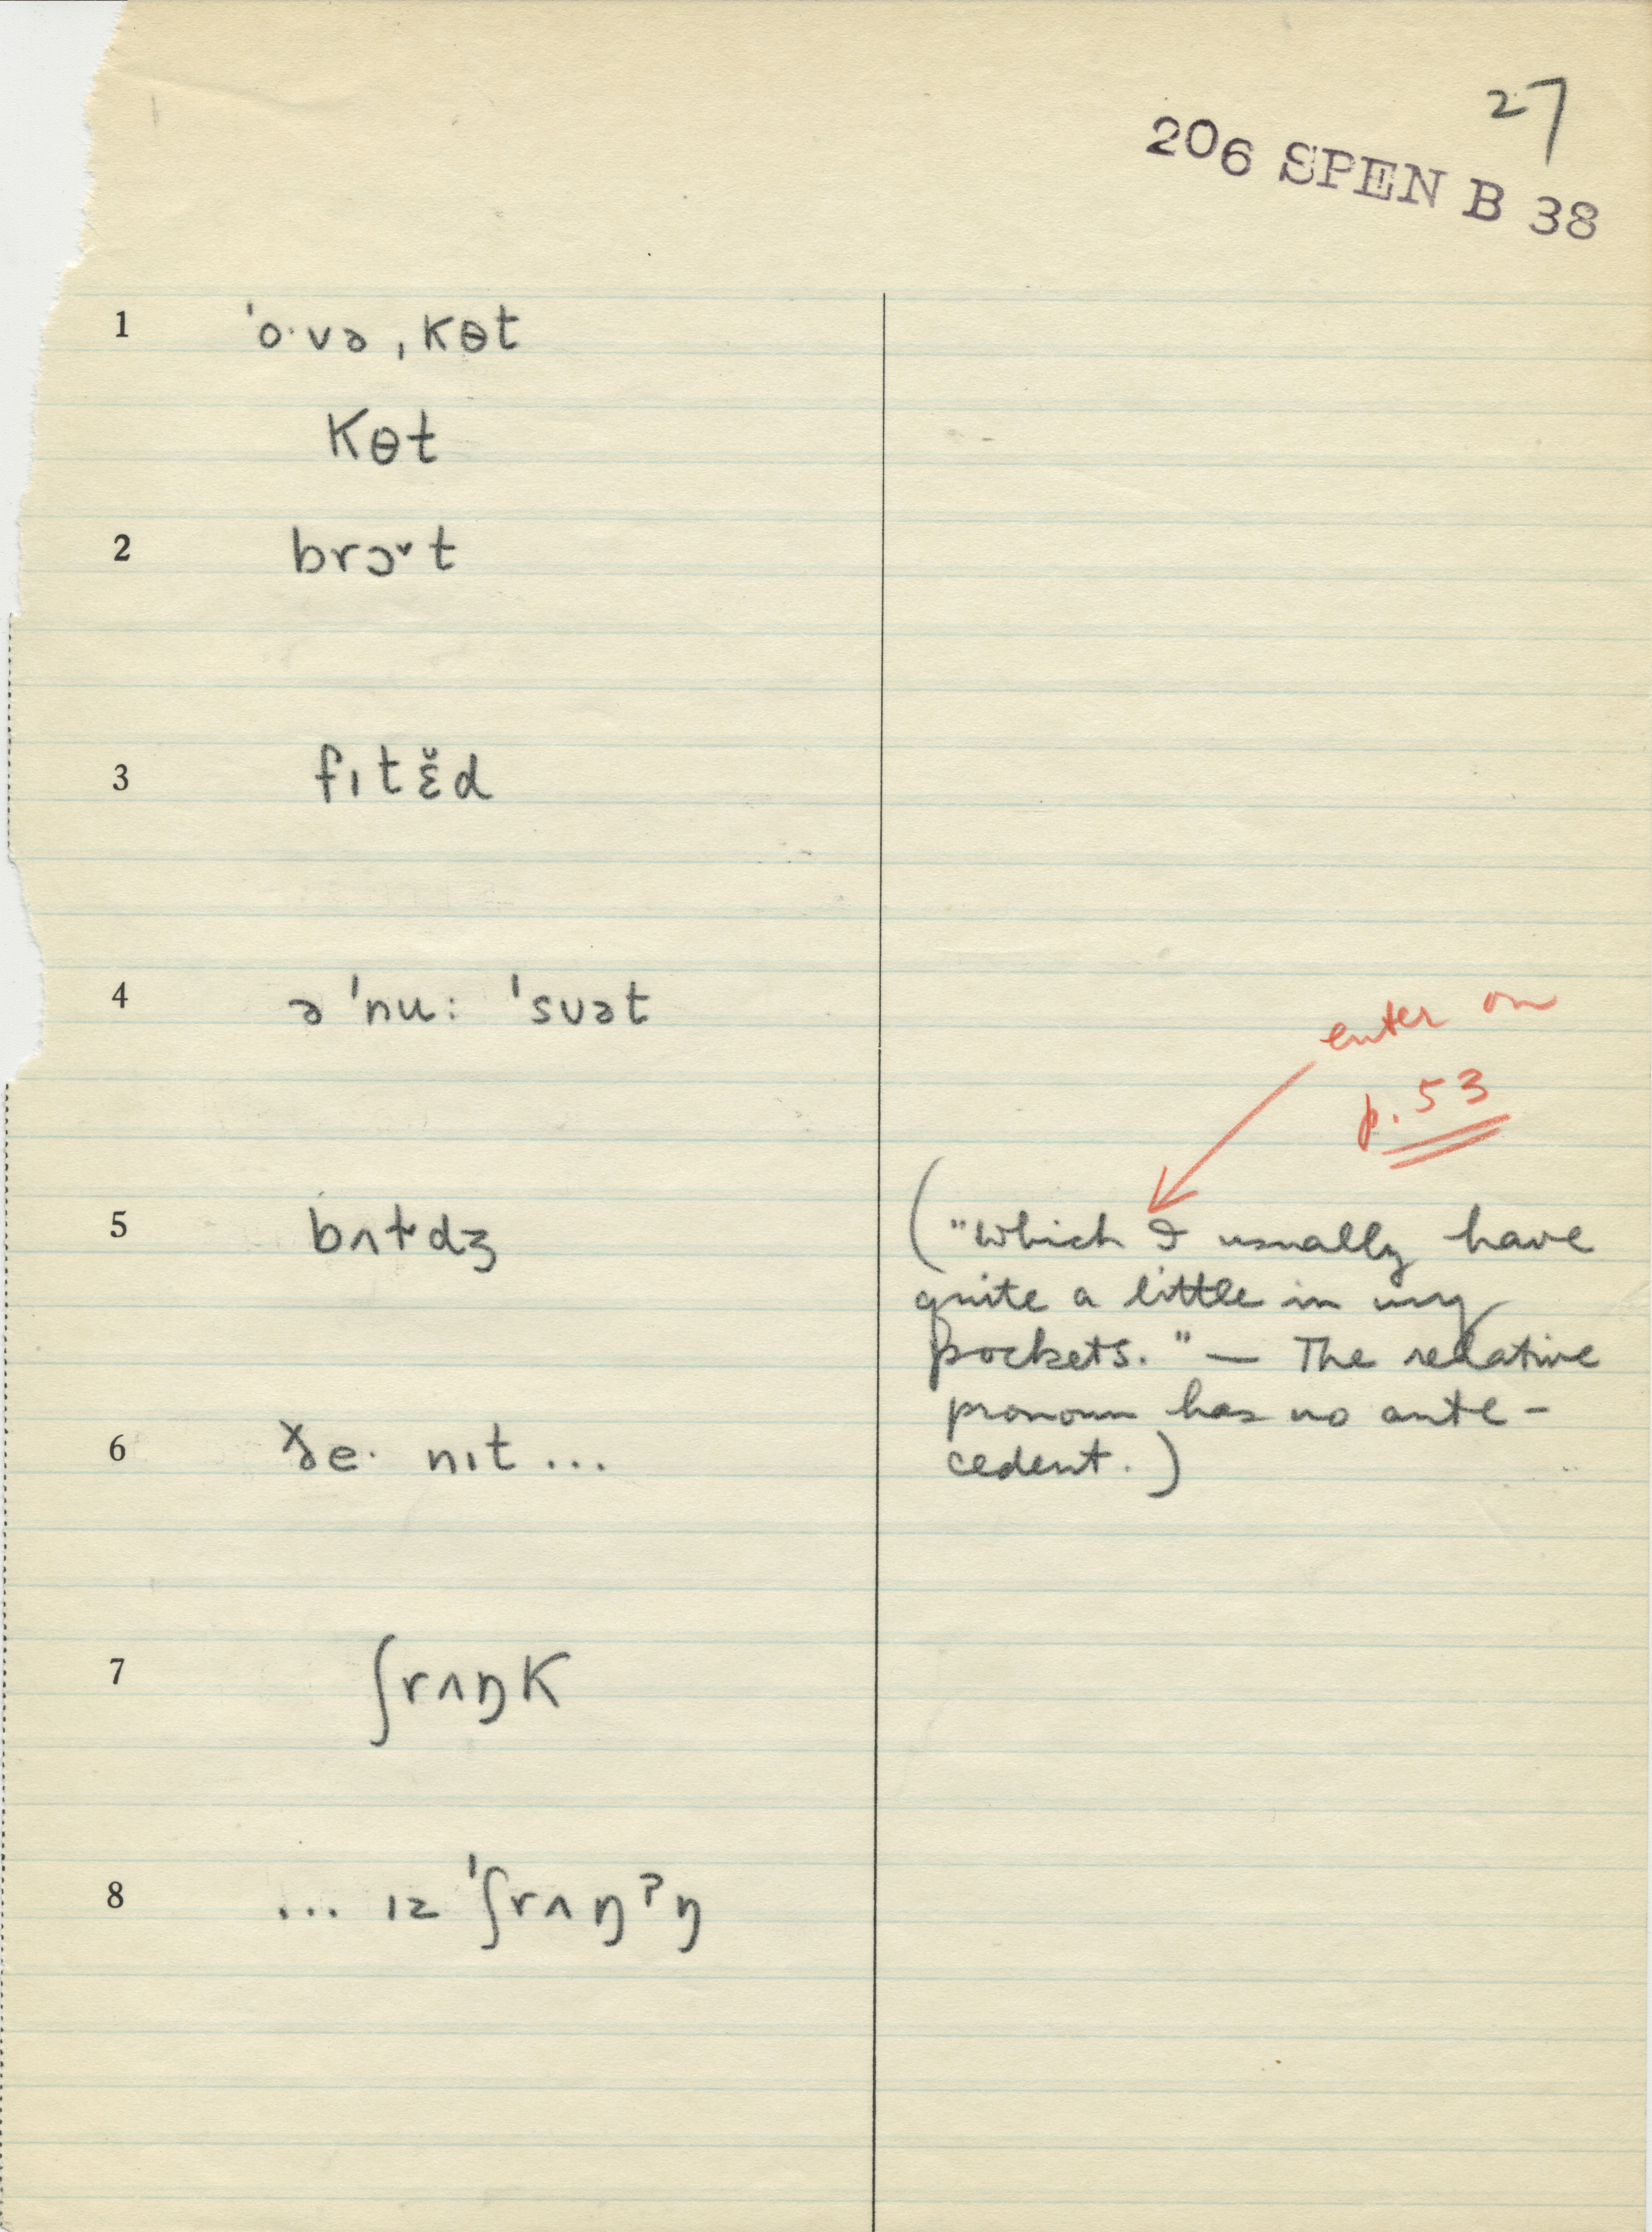 27
206 SPEN B 38
1 ˈo·və ˌkɵt
kɵt
2 brɔ˅t
3 fıtɛ̆d
4 ə ˈnu: ˈsuət
enter on
p. 53
5 bʌtdʒ
("Which I usually have
quite a little in my
pockets." — The relative
pronoun has no ante-
cedent.)
6 nıt ...
7 ʃrʌŋk
8 ... ız ˈʃrʌŋˀŋ